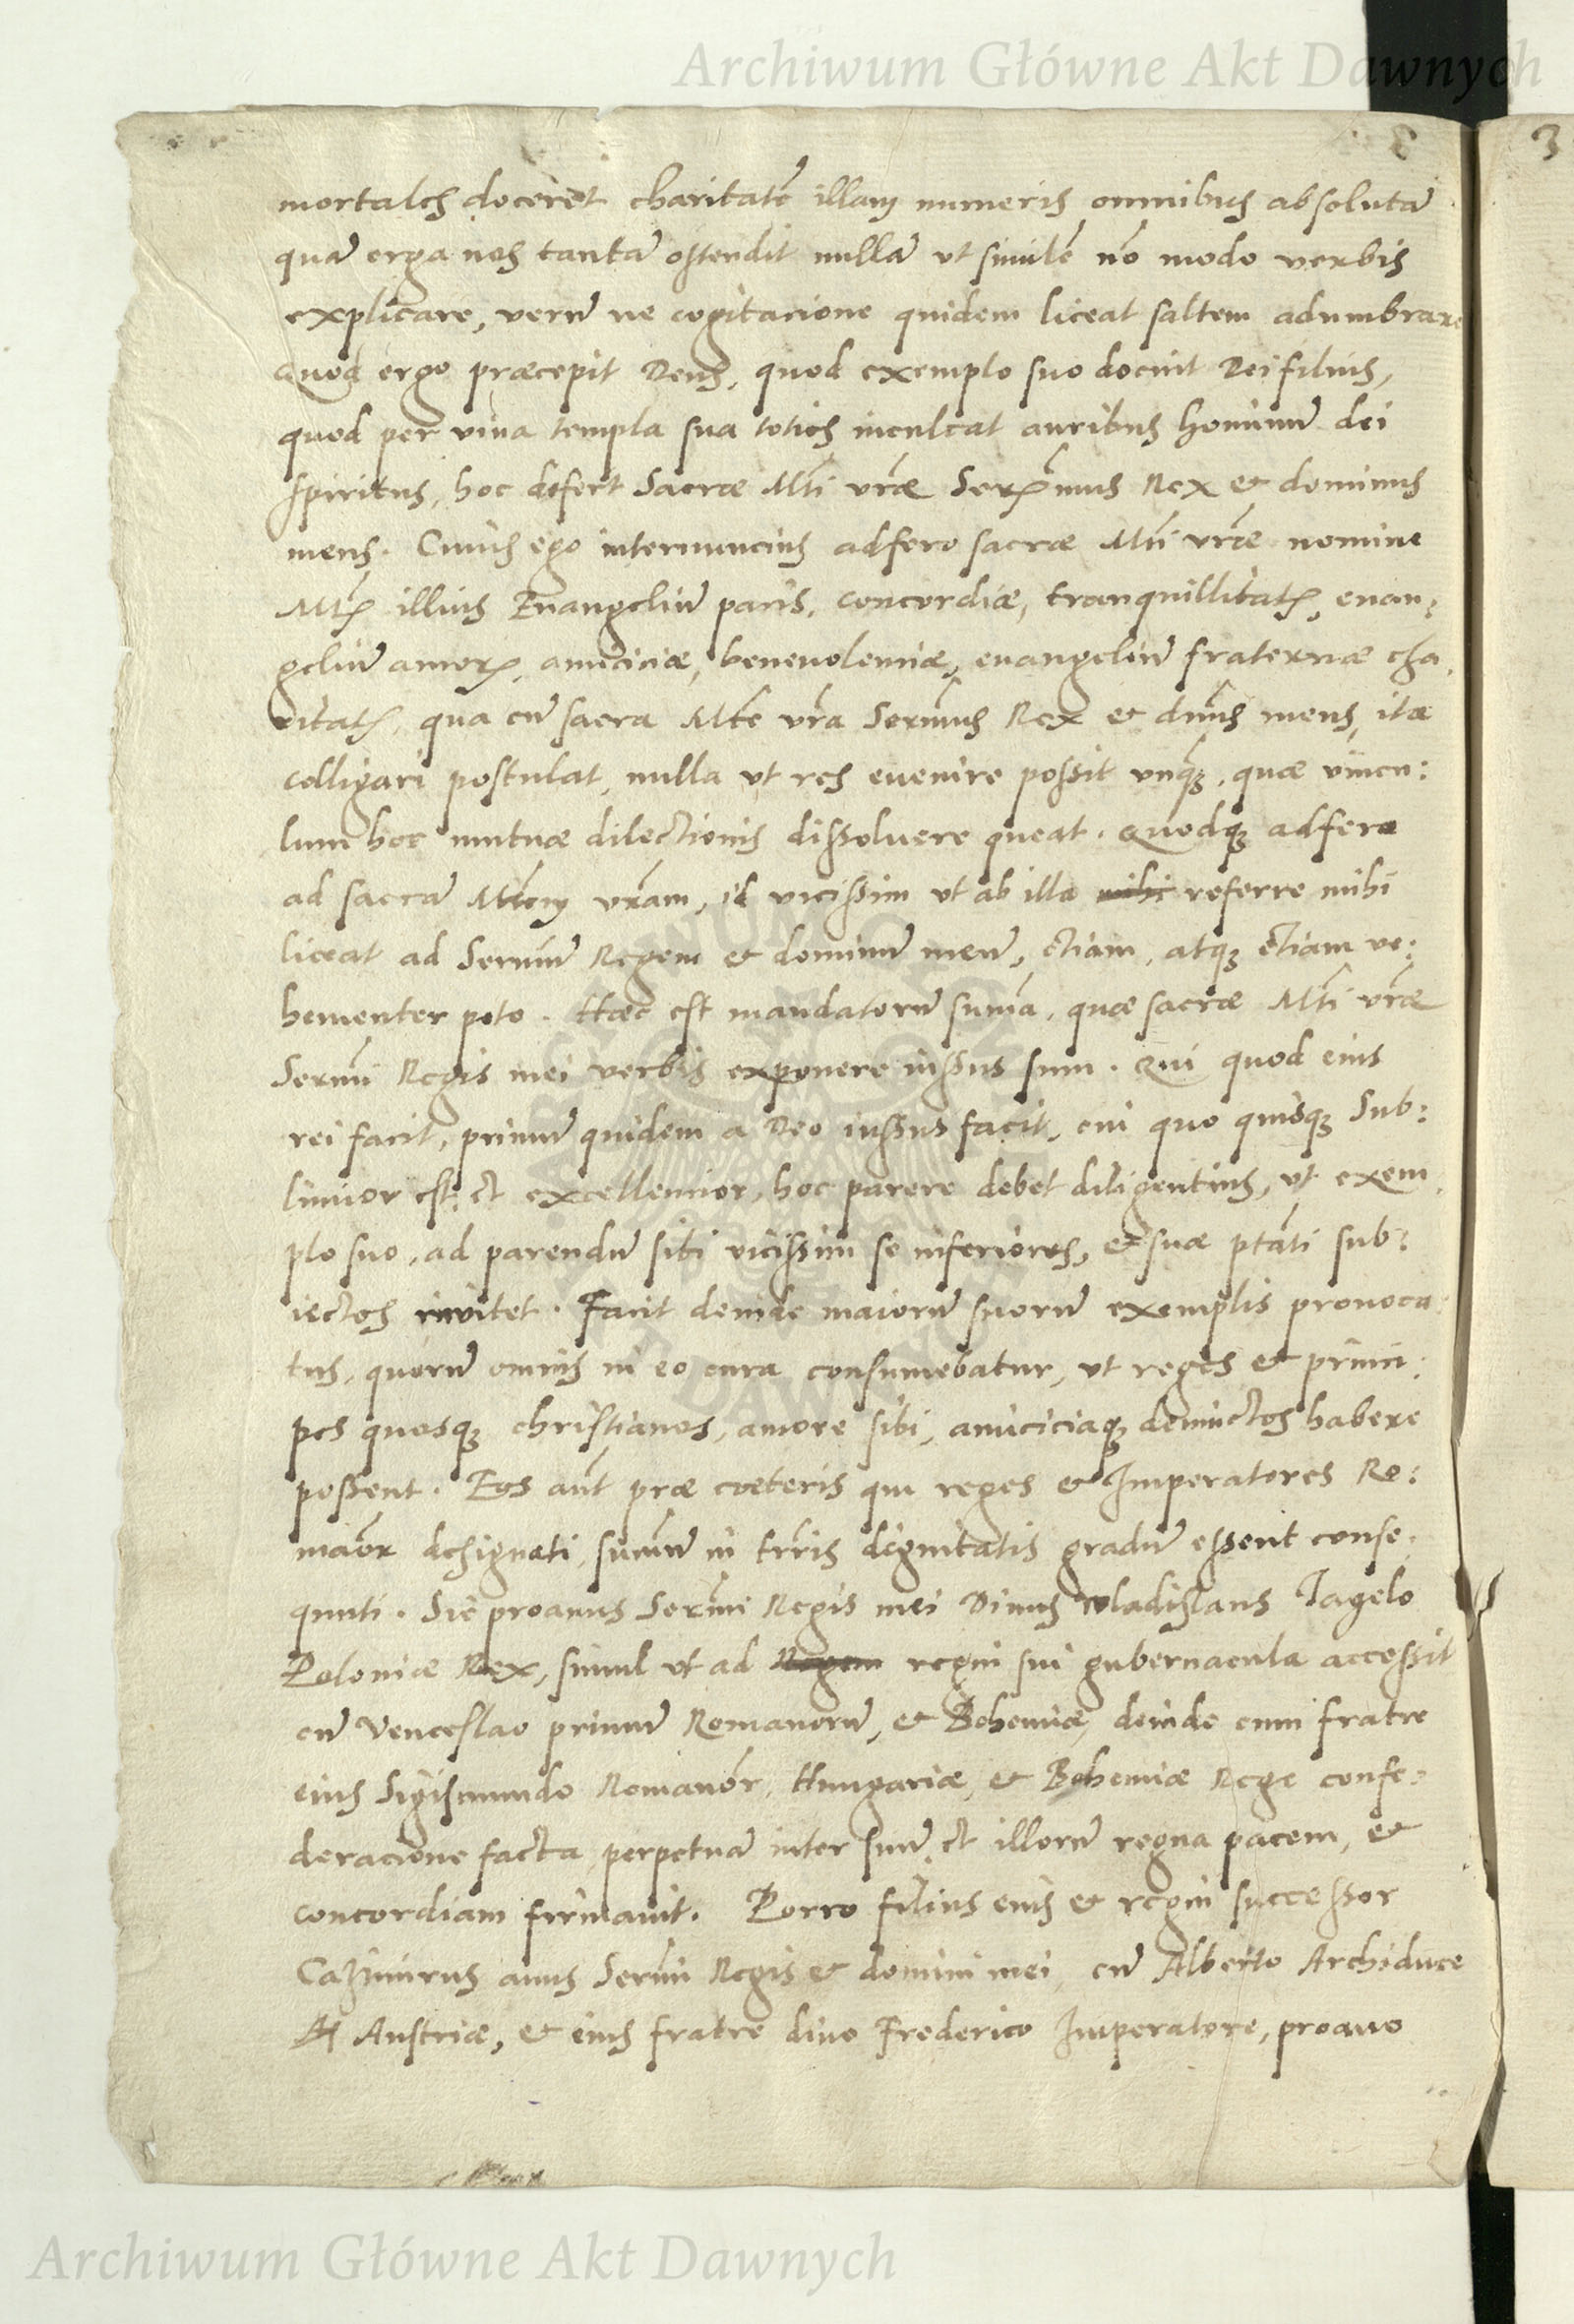 Archiwum Główne Akt Dawnych
3
mortales doceret charitatē illam numeris omnibus absolutā
quā erga nos tantā ostendit nullā ut similē nō modo verbis
explicare, verū ne cogitatione quidem liceat saltem adumbrare
Quod ergo præcepit Deus, quod exemplo suo docuit Dei filius,
quod per viva templa sua toties inculcat auribus hominū dei
spiritus, hoc defert Sacræ Mti vræ Serᵐmus Rex & dominus
meus. Cuius ego internuncius adfero sacræ Mti vræ nomine
Mtis illius Euangeliū pacis, concordiæ, tranquillitatis, euan:
geliū amoris, amiciciæ, beneuolentiæ, euangeliū fraternæ cha
ritatis, qua cū sacra Mte vra Sermus Rex & dnus meus, ita
colligari postulat, nulla ut res evenire possit unq̃, quæ vincu:
lum hoc mutuæ dilectionis dissoluere queat. Quodq; adfero
ad sacrā Mtem vram, id vicissim ut ab illa mihi referre mihi
liceat ad Sermū Regem & dominū meū, etiam, atq; etiam ve:
hementer peto. Hæc est mandatorū suma, quæ sacræ Mti vræ
Sermi Regis mei verbis exponere iussus sum. Qui quod eius
rei facit, primū quidem a Deo iussus facit, cui quo quisq; Sub:
limior est, et excellentior, hoc parere debet diligentius, ut exem
plo suo, ad parendū sibi vicissim se inferiores, & suæ ptati sub:
iectos invitet. Facit deinde maiorū suorū exemplis prouoca
tus, quorū omnis in eo cura consumebatur, ut reges & princi:
pes quosq; christianos, amore sibi, amiciciaq; deuinctos habere
possent. Eos aut præ cæteris qui reges & Imperatores Ro:
manor designati, sumū in terris dignitatis gradū essent conse
quuti. Sic proauus Sermi Regis mei Diuus Wladislaus Jagelo
Poloniæ Rex, simul ut ad Regem regni sui gubernacula accessit
cū Venceslao primū Romanorū, & Bohemiæ, deinde cum fratre
eius Sigismundo Romanor, Hungariæ, & Bohemiæ Rege confe:
deracione facta, perpetuā inter suū, et illorū regna pacem, &
concordiam firmauit. Porro filius eius & regni successor
Cazimirus auus Sermi Regis & domini mei, cū Alberto Archiduce
Austriæ, & eius fratre diuo Frederico Imperatore, proauo
Archiwum Główne Akt Dawnych